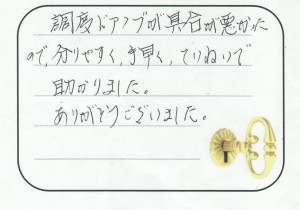 調度ドアノブが具合が悪かった
ので、分りやすく、手早く、ていねいで
助かりました。
ありがとうございました。